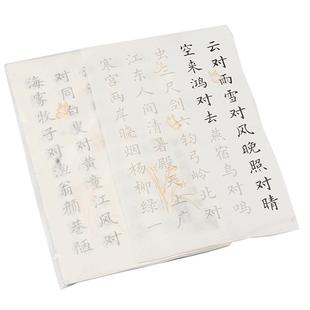 云对雨雪对风晚照对晴
空来鸿对去燕宿鸟对鸣
虫三尺剑六钧弓岭北对
江东人间清暑殿天上广
寒宫两岸晓烟杨柳绿一
对同白叟对黄童江风对
海雾牧子对渔翁颜巷陋